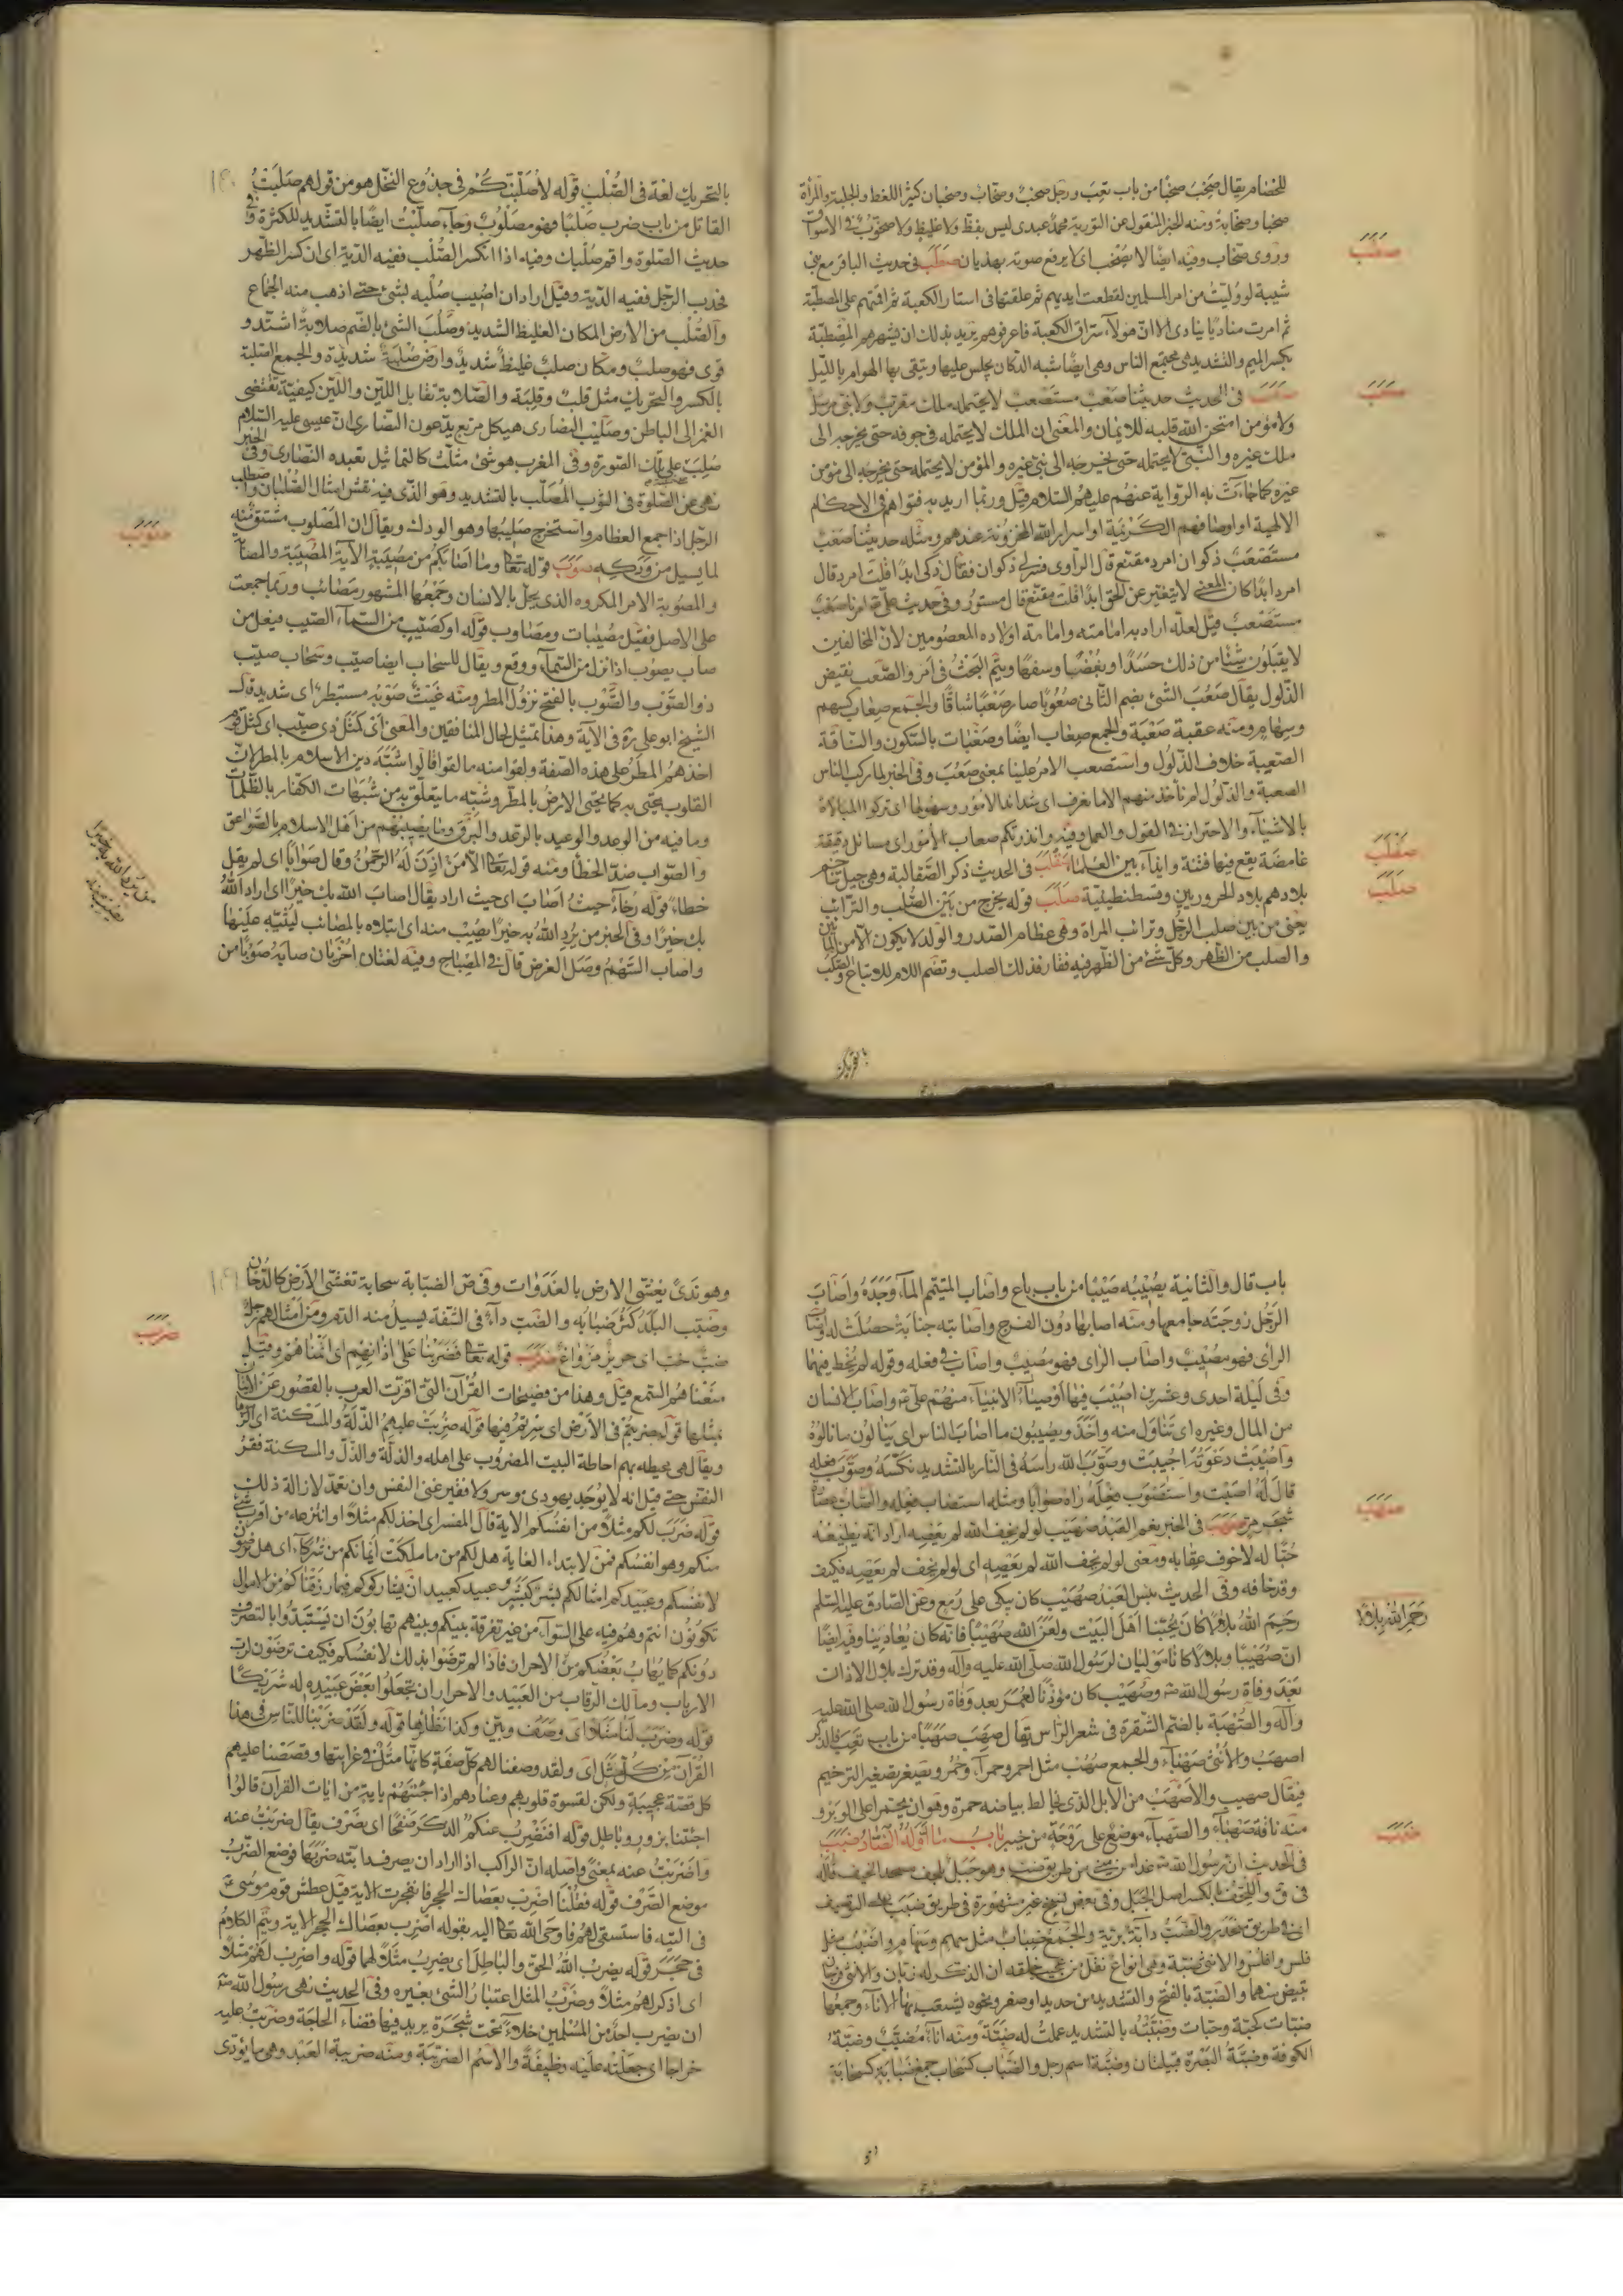 للخصام يقال صخب صخبا من باب تعب ورجل صخب وصخاب وصخبان كثير اللغط والجلبة والمرأة
صخبا وصخابة ومنه الخبر المنقول عن التورية محمد عبدى ليس بفظ ولا غليظ ولا صخوب فى الاسواق
وروى صخاب وفيه ايضا لا يصخب اى لا يرفع صوته بهذيان صطب فى حديث الباقر مع بنى
شيبة لو وليت من امر المسلمين لقطعت ايديهم ثم علقتها فى استار الكعبة ثم اقمتهم على المصطبة
ثم امرت مناديا ينادى الا ان هؤلاء سراق الكعبة فاعرفوهم يريد بذلك ان يشهرهم المصطبة
بكسر الميم والتشديد هى مجتمع الناس وهى ايضا شبه الدكان يجلس عليها ويتقى بها الهوام بالليل
صعب فى الحديث حديثنا صعب مستصعب لا يحتمله ملك مقرب ولا نبى مرسل
ولا مؤمن امتحن الله قلبه للايمان والمعنى ان الملك لا يحتمله فى جوفه حتى يخرجه الى
ملك غيره والنبى لا يحتمله حتى يخرجه الى نبى غيره والمؤمن لا يحتمله حتى يخرجه الى مؤمن
غيره كما جاءت به الرواية عنهم عليهم السلام قيل وربما اريد به فتواهم فى الاحكام
الالهية او اوصافهم الكريمة او اسرار الله المخزونة عندهم ومثله حديثنا صعب
مستصعب ذكوان امرد مقنع قال الراوى فسر لى ذكوان فقال ذكى ابدا قلت امرد قال
امرد ابدا كان المعنى لا يتغير عن الحق ابدا قلت مقنع قال مستور وفى حديث على ع امرنا صعب
مستصعب قيل لعله اراد به امامته وامامة اولاده المعصومين لان المخالفين
لا يقبلون شيئا من ذلك حسدا وبغضا وسفها ويتم البحث فى امر والصعب نقيض
الذلول يقال صعب الشئ بضم الثانى صعوبا صار صعبا شاقا والجمع صعاب كسهم
وسهام ومنه عقبة صعبة والجمع صعاب ايضا وصعبات بالسكون والناقة
الصعبة خلاف الذلول واستصعب الامر علينا بمعنى صعب وفى الخبر لما ركب الناس
الصعبة والذلول لم نأخذ منهم الا ما نعرف اى شدائد الامور وسهولها اى تركوا المبالاة
بالاشياء والاحتراز فى القول والعمل وفيه وانذرتكم صعاب الامور اى مسائل دقيقة
غامضة يقع فيها فتنة وايذاء بين العلماء صقلب فى الحديث ذكر الصقالبة وهى جيل تتاخم
بلادهم بلاد الخزر بين وقسطنطينية صلب قوله يخرج من بين الصلب والترائب
يعنى من بين صلب الرجل وترائب المراة وهى عظام الصدر والولد لا يكون الا من المائين
والصلب من الظهر وكل شئ من الظهر فيه فقار فذلك الصلب وتضم اللام للاتباع والصلب
صطب
صعب
صقلب
صلب
بالتحريك
بالتحريك لغة فى الصلب قوله لاصلبنكم فى جذوع النخل هو من قولهم صلبت
القاتل من باب ضرب صلبا فهو مصلوب وجاء صلبت ايضا بالتشديد للكثرة وفى
حديث الصلوة واقم صلبك وفيه اذا انكسر الصلب ففيه الدية اى ان كسر الظهر
فحدب الرجل ففيه الدية وقيل اراد ان اصيب صلبه بشئ حتى اذهب منه الجماع
والصلب من الارض المكان الغليظ الشديد وصلب الشئ بالضم صلابة اشتد و
قوى فهو صلب ومكان صلب غليظ شديد وارض صلبة شديدة والجمع الصلبة
بالكسر والتحريك مثل قلب وقلبة والصلابة تقابل اللين واللين كيفية تقتضى
الغمز الى الباطن وصليب النصارى هيكل مربع يدعون النصارى ان عيسى عليه السلام
صلب على تلك الصورة وفى المغرب هو شئ مثلث كالتماثيل تعبده النصارى وفى الخبر
نهى عن الصلوة فى الثوب المصلب بالتشديد وهو الذى فيه نقش امثال الصلبان واصطلب
الرجل اذا جمع العظام واستخرج صليبها وهو الودك ويقال ان المصلوب مشتق منه
لما يسيل من ودكه صوب قوله تعالى وما اصابكم من مصيبة الاية المصيبة والمصابة
والمصوبة الامر المكروه الذى يحل بالانسان وجمعها المشهور مصائب وربما جمعت
على الاصل فقيل مصيبات ومصاوب قوله او كصيب من السماء الصيب فيعل من
صاب يصوب اذا نزل من السماء ووقع ويقال للسحاب ايضا صيب وسحاب صيب
ذو الصوب والصوب بالفتح نزول المطر ومنه غيث صوبه مستبطر اى شديد قال
الشيخ ابو على ره فى الاية وهذا تمثيل لحال المنافقين والمعنى او كمثل ذوى صيب اى كمثل قوم
اخذهم المطر على هذه الصفة ولقوا منه ما لقوا قالوا شبه دين الاسلام بالمطر لان
القلوب تحيى به كما تحيى الارض بالمطر وشبه ما يتعلق به من شبهات الكفار بالظلمات
وما فيه من الوعد والوعيد بالرعد والبرق وما يصيبهم من اهل الاسلام بالصواعق
والصواب ضد الخطأ ومنه قوله تعالى الا من اذن له الرحمن وقال صوابا اى لم يقل
خطاء قوله رخاء حيث اصاب اى حيث اراد يقال اصاب الله بك خيرا اى اراد الله
بك خيرا وفى الخبر من يرد الله به خيرا يصيب منه اى ابتلاه بالمصائب ليثيبه عليها
واصاب السهم وصل الغرض قال فى المصباح وفيه لغتان اخريان صابه صوبا من
صوب
من يرد الله به خيرا
يصيب منه
باب قال والثانية يصيبه صيبا من باب باع واصاب المتيمم الماء وجده واصاب
الرجل زوجته جامعها ومنه اصابها دون الفرج واصابته جنابة حصلت له واصاب
الراى فهو مصيب واصاب الراى فهو مصيب واصاب فى فعله وقوله لم يخط فيهما
وفى ليلة احدى وعشرين اصيب فيها اوصياء الانبياء منهم على ع واصاب الانسان
من المال وغيره اى تناول منه واخذ ويصيبون ما اصاب الناس اى ينالون ما نالوه
واصيبت دعوته اجيبت وصوب الله راسه فى النار بالتشديد نكسه وصوب فعله
قال له اصبت واستصوب فعله راه صوابا ومثله استصاب فعله والصاب عصارة
شجر مر صهب فى الخبر نعم العبد صهيب لو لم يخف الله لم يعصه اراد انه يطيعه
حبا له لا خوف عقابه ومعنى لو لم يخف الله لم يعصه اى لو لم يخف لم يعصه فكيف
وقد خافه وفى الحديث بئس العبد صهيب كان يبكى على رمع وعن الصادق عليه السلم
رحم الله بلالا كان يحبنا اهل البيت ولعن الله صهيبا فانه كان يعادينا وفيه ايضا
ان صهيبا وبلالا كانا موليان لرسول الله صلى الله عليه وآله وقد ترك بلال الاذان
بعد وفاة رسول الله ص وصهيب كان مؤذنا لعمر بعد وفاة رسول الله صلى الله عليه
وآله والصهبة بالضم الشقرة فى شعر الراس يقال صهب صهبا من باب تعب فالذكر
اصهب والانثى صهباء والجمع صهب مثل احمر وحمراء وحمر ويصغر تصغير الترخيم
فيقال صهيب والاصهب من الابل الذى يخالط بياضه حمرة وهو ان يحتمر اعلى الوبر و
منه ناقة صهباء والصهباء موضع على روحة من خيبر باب ما اوله الضاد ضبب
فى الحديث ان رسول الله ص غدا من منى من طريق ضب وهو جبل مسجد الخيف قاله
فى ق واللحف بالكسر اصل الجبل وفى بعض نسخ غير مشهورة فى طريق ضبب
اى فى طريق منحدر والضب دابة برية والجمع ضباب مثل سهم وسهام واضب مثل
فلس وافلس والانثى ضبة وهى انواع نقل من عجيب خلقه ان الذكر له زبان والانثى فرجان
تبيض منهما والضبة بالفتح والتشديد من حديد او صفر ونحوه يشعب بها الاناء وجمعها
ضبات كحبة وحبات وضببته بالتشديد عملت له ضبة ومنه اناء مضبب وضبة
الكوفة وضبة البصرة قبيلتان وضبة اسم رجل والضباب كسحاب جمع ضبابة كسحابة
صهب
رحم الله بلالا
ضبب
وهو ندى يغشى الارض بالغدوات وفى ص الضبابة سحابة تغشى الارض كالدخان
وضبب البلد كثر ضبابه والضب داء فى الشفة يسيل منه الدم ومن امثالهم رجل
ضب خب اى جربز مراوغ ضرب قوله تعالى فضربنا على اذانهم اى انمناهم وقيل
منعناهم السمع قيل وهذا من فصيحات القران التى اقرت العرب بالقصور عن الاتيان
بمثلها قوله ضربتم فى الارض اى سرتم فيها قوله ضربت عليهم الذلة والمسكنة اى الزموها
ويقال هى محيطة بهم احاطة البيت المضروب على اهله والذلة والذل والمسكنة فقر
النفس حتى قيل انه لا يوجد يهودى موسر ولا فقير غنى النفس وان تعمد لازالة ذلك
قوله ضرب لكم مثلا من انفسكم الاية قال المفسر اى اخذ لكم مثلا او انتزعه من اقرب شئ
منكم وهو انفسكم فمن لابتداء الغاية هل لكم من ما ملكت ايمانكم من شركاء اى هل ترضون
لانفسكم وعبيدكم امثالكم بشر كبشر وعبيد كعبيد ان يشاركوكم فيما رزقناكم من الاموال
تكونون انتم وهم فيه على السواء من غير تفرقة بينكم وبينهم تهابون ان يستبدوا بالتصرف
دونكم كما يهاب بعضكم من الاحرار فاذا لم ترضوا بذلك لانفسكم فكيف ترضون لرب
الارباب ومالك الرقاب من العبيد والاحرار ان تجعلوا بعض عبيده له شريكا
قوله وضرب لنا مثلا اى وصف وبين وكذا نظائرها قوله ولقد ضربنا للناس فى هذا
القران من كل مثل اى ولقد وصفنا لهم كل صفة كانها مثل فى غرابتها وقصصنا عليهم
كل قصة عجيبة ولكن لقسوة قلوبهم وعنادهم اذا جئتهم باية من ايات القران قالوا
اجئتنا بزور وباطل قوله افنضرب عنكم الذكر صفحا اى نصرف يقال ضربت عنه
واضربت عنه بمعنى واصله ان الراكب اذا اراد ان يصرف دابته ضربها فوضع الضرب
موضع الصرف قوله فقلنا اضرب بعصاك الحجر فانفجرت الاية قيل عطش قوم موسى ع
فى التيه فاستسقى لهم فاوحى الله تعالى اليه بقوله اضرب بعصاك الحجر الاية ويتم الكلام
فى حجر قوله يضرب الله الحق والباطل اى يضرب مثلا لهما قوله واضرب لهم مثلا
اى اذكر لهم مثلا وضرب المثل اعتبار الشئ بغيره وفى الحديث نهى رسول الله ص
ان يضرب احد من المسلمين خلاء تحت شجرة يريد فيها قضاء الحاجة وضربت عليه
خراجا اى جعلته عليه وظيفة والاسم الضريبة ومنه ضريبة العبد وهى ما يؤدى
ضرب